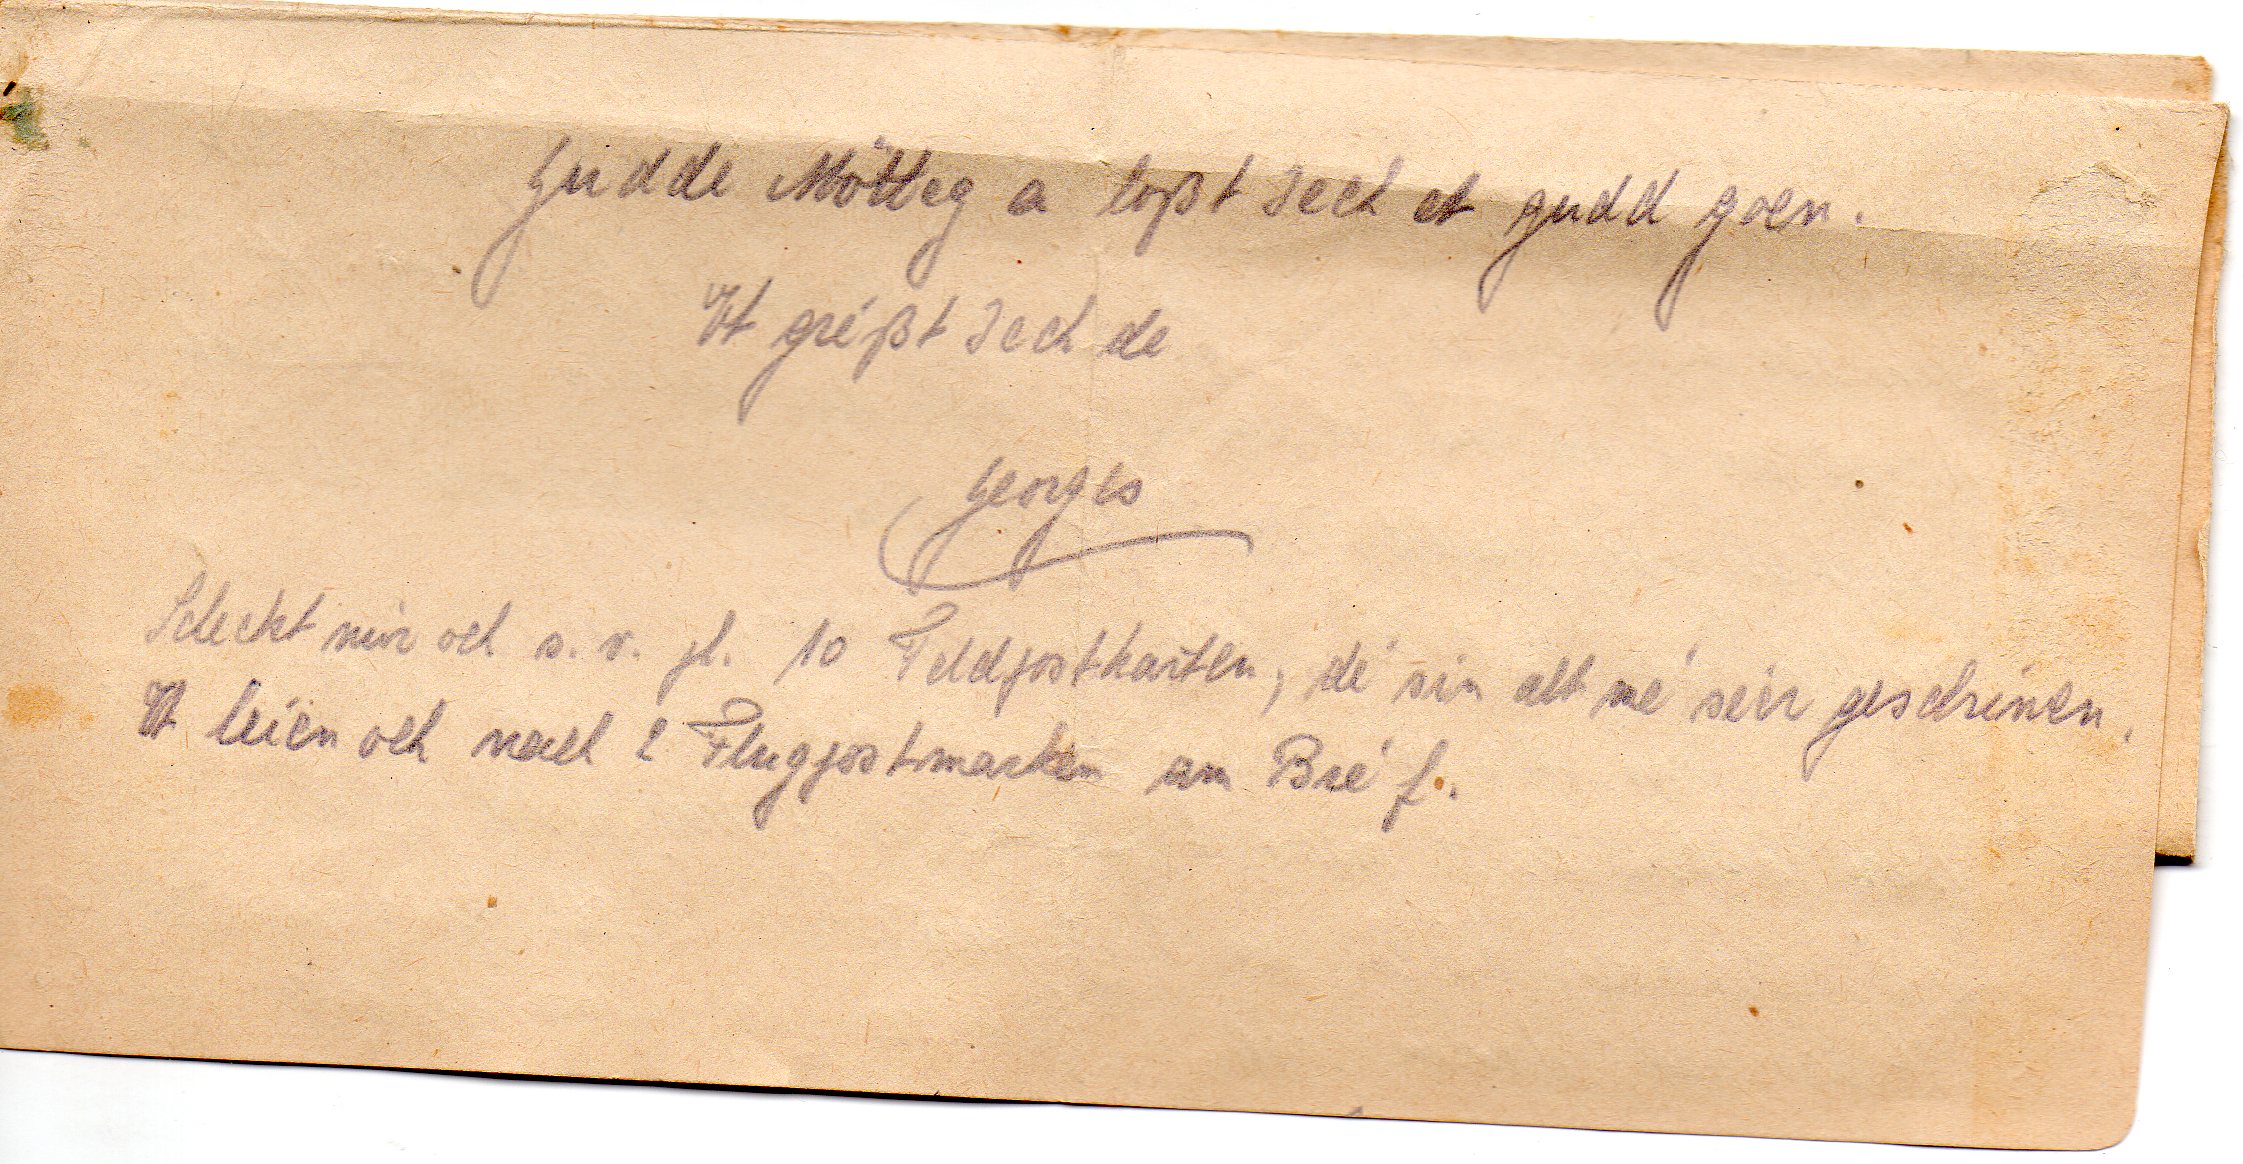 Gudde Mötteg a loßt Iech et gudd goen.
Et gréßt Iech de
Georges
Scheckt mir och s. v. pl. 10 Feldpostkarten, dé sin alt mé séier geschriwen.
Et leien och nach 2 Flugpostmarken am Bréf.